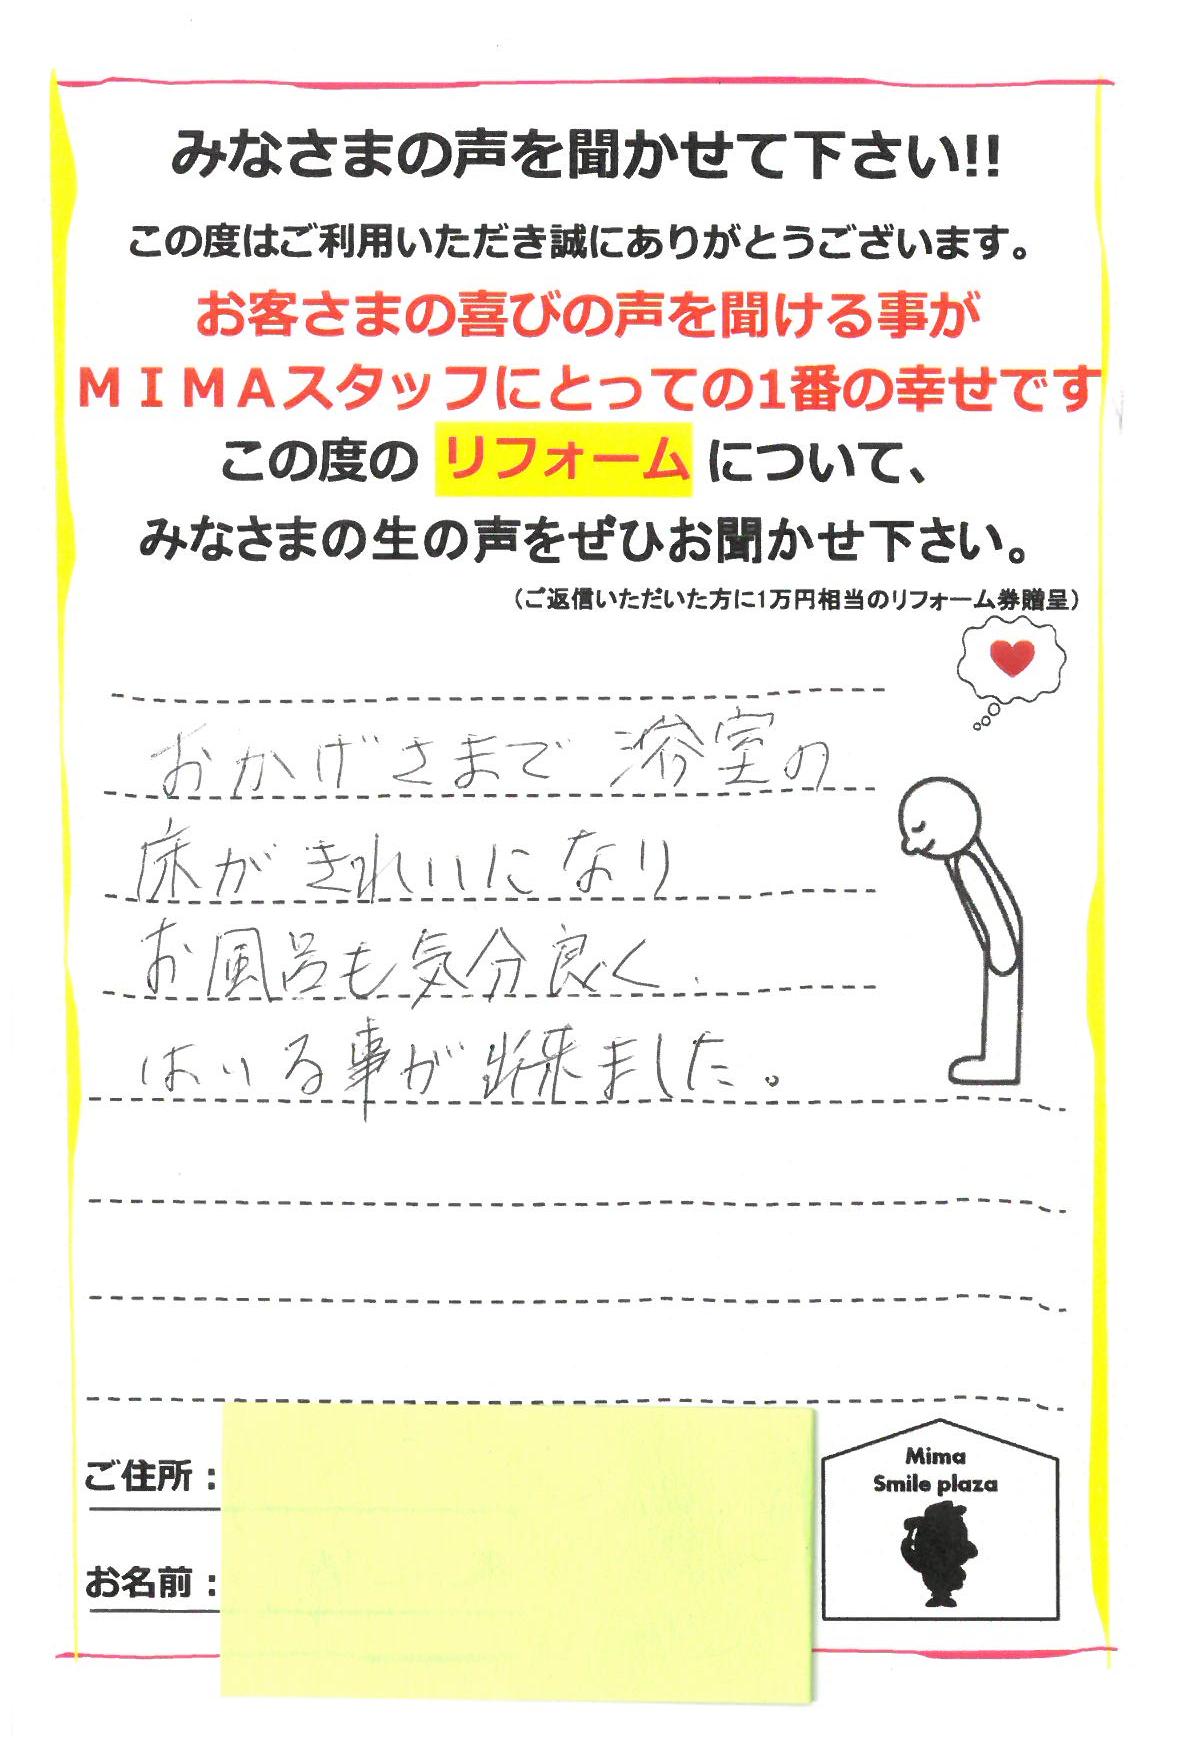 みなさまの声を聞かせて下さい!!
この度はご利用いただき誠にありがとうございます。
お客さまの喜びの声を聞ける事が
ＭＩＭＡスタッフにとっての1番の幸せです
この度の リフォーム について、
みなさまの生の声をぜひお聞かせ下さい。
（ご返信いただいた方に1万円相当のリフォーム券贈呈）
おかげさまで 浴室の
床が きれいになり
お風呂も気分良く
はいる事が出来ました。
ご住所：
お名前：
Mima
Smile plaza